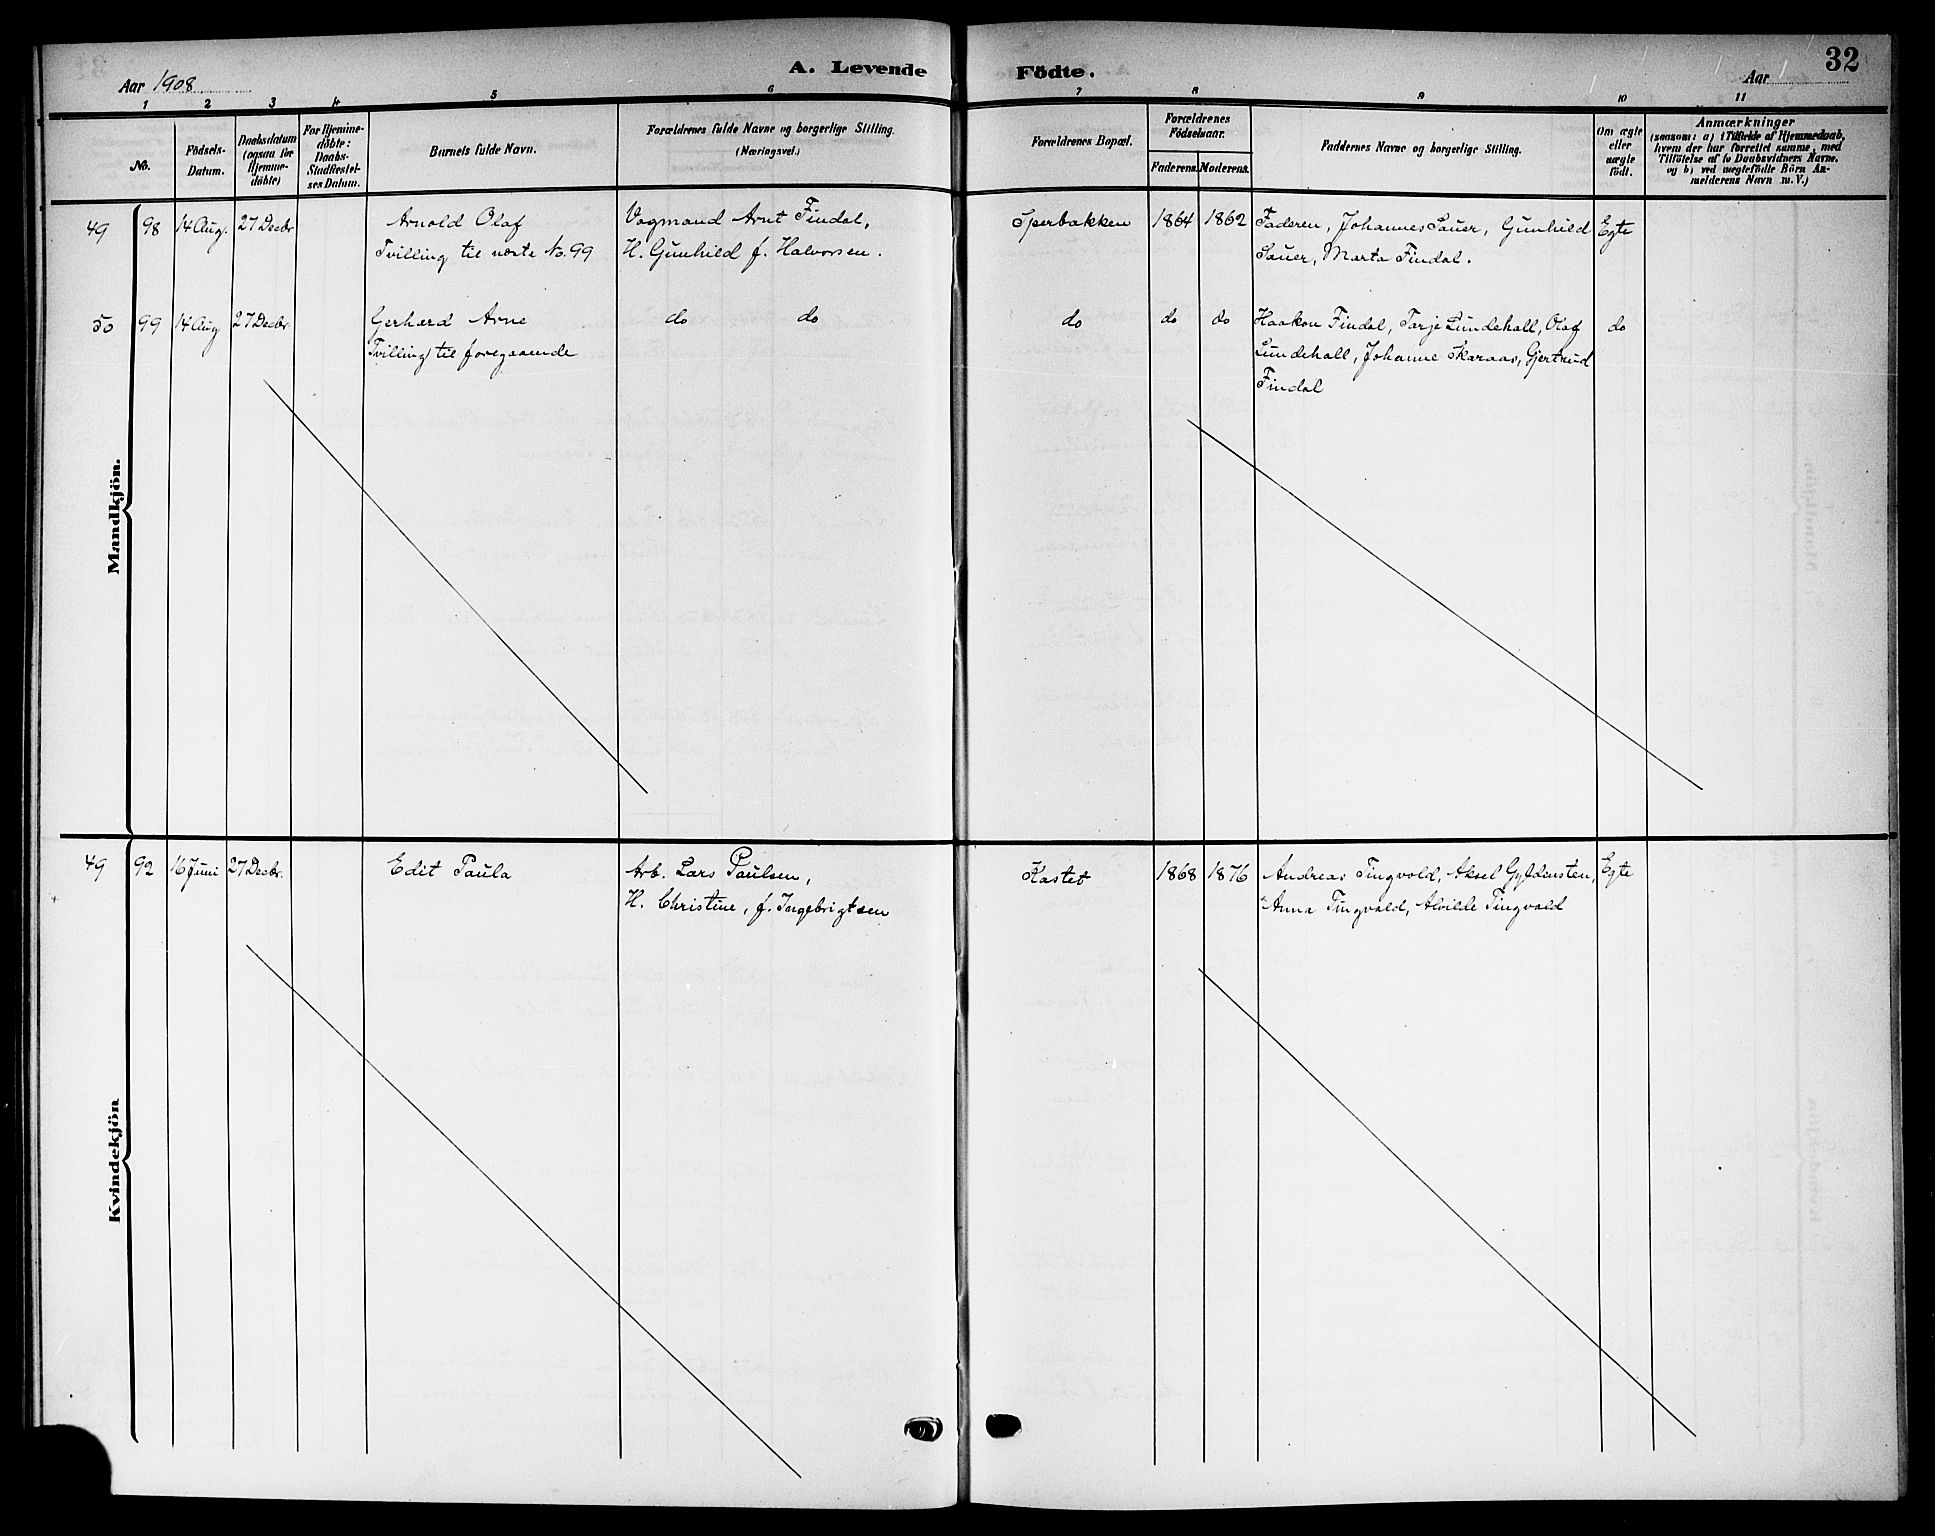 Aar 1908
A. Levende Födte.
Aar 1
32
1 2 3 4 5 6 7 8 9 10 11
No.
Födsels-
Datum.
Daabsdatum
(ogsaa for
Hjemme-
döbte)
For Hjemme-
döbte:
Daabs-
Stadfæstel-
ses Datum.
Barnets fulde Navn.
Forældrenes fulde Navne og borgerlige Stilling.
(Næringsvei.)
Forældrenes Bopæl.
Forældrenes
Födselsaar.
Faderens. Moderens.
Faddernes Navne og borgerlige Stilling.
Om ægte
eller
uægte
födt.
Anmærkninger
(saasom: a) i Tilfælde af Hjemmedaab,
hvem der har forrettet samme, med
Tilföielse af to Daabsvidners Navne.
og b) ved uægtefödte Börn An-
melderens Navn m. V.)
Mandkjön.
49 98 14 Aug. 27 Decbr Arnold Olaf Vognmand Arnt Findal, Sperbakken 1864 1862 Faderen, Johannes Sauer, Gunhild Egte
Tvilling til næste No. 99 H. Gunhild f. Halvorsen. Sauer, Marta Findal.
50 99 14 Aug 27 Decbr. Gerhard Arne do do do do do Haakon Findal, Tarje Lundehall, Olaf do
Tvilling til foregaaende Lundehall, Johanne Skaraas, Gjertrud
Findal
Kvindekjön
49 92 16 Juni 27 Decbr. Edit Paula Arb. Lars Paulsen, Kastet 1868 1876 Andreas Tingvold, Aksel Gyldensten, Egte
H. Christine, f. Ingebrigtsen Anna Tingvald, Alvilde Tingvald